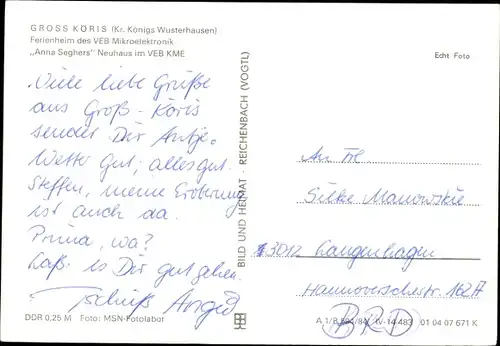 GROSS KÖRIS (Kr. Königs Wusterhausen)
Ferienheim des VEB Mikroelektronik
„Anna Seghers" Neuhaus im VEB KME
Viele liebe Grüße
aus Groß-Köris
sendet Dir Antje.
Wetter gut, alles gut.
Steffen, meine Eroberung
ist auch da.
Prima, wa?
Laß es Dir gut gehen.
Tschüß
DDR 0,25 M Foto: MSN-Fotolabor
BILD UND HEIMAT · REICHENBACH (VOGTL)
Echt Foto
An Frl.
Silke Manowskie
3012 Langenhagen
Hannoverschestr. 162A
BRD
IV-14-483 01 04 07 671 K